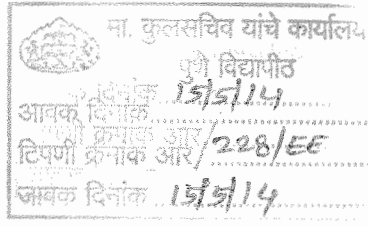 मा. कुलसचिव यांचे कार्यालय
पुणे विद्यापीठ
आवक दिनांक 15/5/14
टिपणी क्रमांक और/228/EE
जावक दिनांक 15/5/14